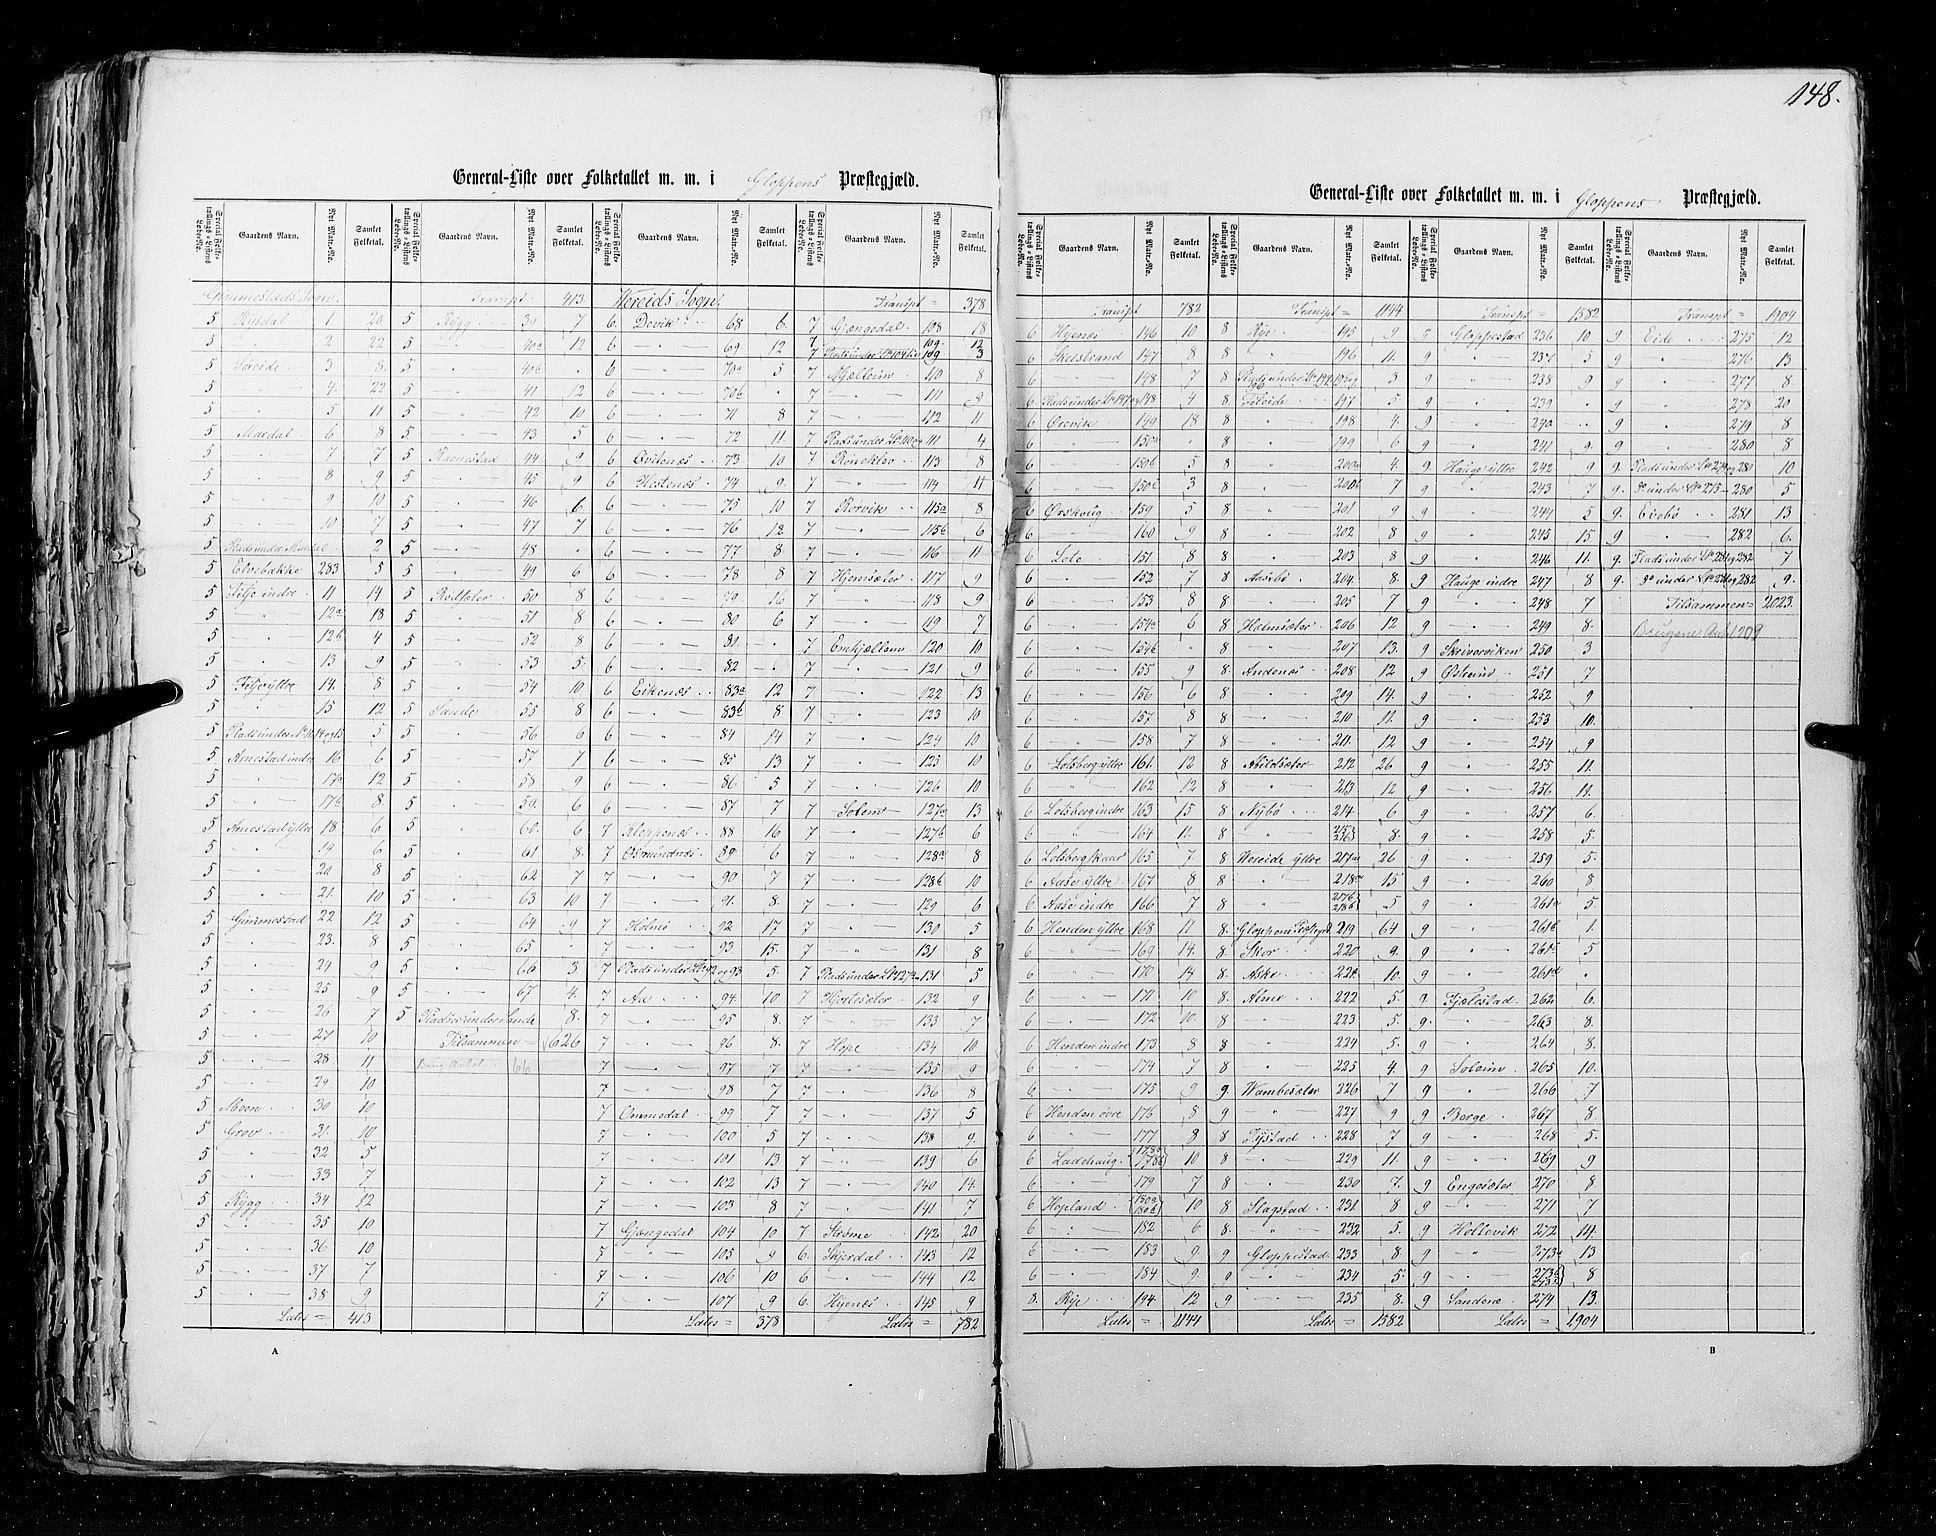 148.
General-Liste over Folketallet m. m. i Gloppens Præstegjæld.
Special Folketællings-Listens Løbe-No. Gaardens Navn. Nyt Matr.-No. Samlet Folketal.
Gimmestads Sogn.
5 Rysdal 1 20
5 2 22
5 Søreide 3 8.
5 4. 22
5 5 11
5 Mardal 6 8
5 7 7
5 8 9
5 9 10
5 10 7
5 Plads under Mardal 2
5 Elvebakke 283 5
5 Felje indre 11 14
5 12a 18
5 12b 4
5 13 9
5 Felje yttre 14. 8
5 15 12
5 Plads under 14 og 15 5
5 Arnestad indre 16 6
5 17a 12
5 17b 8.
5 Arnestad yttre 18 6
5 19 6
5 20 8
5 21. 10
5 Gimmestad 22. 12
5 23. 8
5 24 9
5 25 9
5 26 7
5 27 10
5 28 11
5 29 10
5 Moen 30 10
5 Grov 31. 10
5 32 5
5 33 7
5 Rygg 34 12
5 35 10
5 36 10
5 37 7
5 38 9
Latus = 413
Transpt = 413
5 Rygg 39 7
5 40a 12
5 40b
5 41 12
5 42 10
5 43 5
5 Ravnestad 44 9
5 45 9
5 46 6
5 47 7
5 48
5 49 6
5 50 8
5 51 8
5 52 8
5 53 5.
5 54 10
5 Sande 55 8
5 56 6
5 57 7
5 58 9
5 59. 6
5 60. 6
5 61 8.
5 62 7
5 63 10
5 64 9
5 65
5 66 3
5 67 4.
5 Pladser under Sande 8.
Tilsammen = 626
66
Vereids Sogn
6. Devik 68 6.
6 69 12
6 70a 5
6 70b
6 71 8
6 72 11
6 73 10
6 Hestenæs 74 9.
6 75 10
6 76 12
6 77 8.
6 78 8
6 79 16
6 80 6
6 81.
6 82
6 Eikenæs 83a 12
6 83b 8
6 84 14
6 85 13
6 86 5
6 87 7
7 Kleppenæs 88 16
7 Osmundnæs 89 6
7 90 7
7 91. 8.
7 Holme 92 17
7 93 15.
7 Plads under 92 og 93 5.
7 Aa 94. 10
7 95 8.
7 96 8.
7 97 7
7 98 7
7 Ommedal 99 7
7 100 5
7 101 13
7 102 13
7 103 8
7 Gjængedal 104 10
7 105 9
7 106 10
7 107 9
Latus = 378
Transpt = 378
7 Gjængedal 108 18
7 109. 12
7 Plads under 109 3
7 Mjellem 110 8
7 111 9
7 112 11
7 Plads under 110 og 111 4
7 Røneklev 113 8
7 114 11
7 Rørvik 115a 8
7 115b 6
7 116 11
7 Hjemsæter 117 9
7 118 9
7 119 7
7 Emhjellem 120 10
7 121 9
7 122 13
7 123 10
7 124 10
7 125 10
7 126 10
7 Solem 127a 13
7 127b 6
7 128a 8.
7 128b 10
7 129 6
7 130 5
7 131 8
7 Plads under 127a-131 5
7 Hjortesæter 132 9
7 133 7
7 Hope 134 10
7 135 9
7 136 8
7 137 5
7 138 9.
7 139 6
7 140 14.
7 141 7
7 Strøme 142 20
6. Skjerdal 143 12
6 144 12
6. Hyenæs 145 9
Latus = 782
A
General-Liste over Folketallet m. m. i Gloppens Præstegjæld.
Special Folketællings-Listens Løbe-No. Gaardens Navn. Nyt Matr.-No. Samlet Folketal.
Transpt 782
6 Hyenes 146 10
6 Skeistrand 147 8
6 148 7
6 Plads under 147 og 148 4
6 Ørevik 149 18
6 150a
6 150b 5
6 150c 3
6 Ørshaug 159 5
6 160 9
6 Lote 151 8
6 152 7
6 153 8
6 154a 6
6 154b
6 155 9
6 156 6
6 157 8
6 158 7
6 Lotsberg yttre 161. 12
6 162 12
6 Lotsberg indre 163 15
6 164 11.
6 165 7.
6 Aase yttre 167 8
6 Aase indre 166 7
6 Henden yttre 168 11
6 169 14.
6 170 14
6 171 10
6 172 10.
6 Henden indre 173 8
6 174 7
6. 175 9
6 Henden øvre 176 8
6 177 8
6 Ladehaug 178a 178b 10
6 179 7
6 Hopland 180a 180b 10
6 182 6
6 183 9.
6 184 9.
8. Rye 194 12
Latus = 1144
Transpt = 1144
8 Rye 195 9
8 196 11.
8 Plads under 194, 195 og 196 3
8 197 5
8 198 4.
8 199 6
8 200a 4.
8 200b 7
8 201 9
8 202 8
8 203 8
8 Aasebø 204. 8.
8 205 7
8 Holmsæter 206 12
8 207 13.
8. Andenæs 208 12
8 209 14.
8 210 11.
8 211. 12
8 212 26
8 213 12
8 Nybø 214 6
8 215 216 8.
8 Vereide yttre 217a 26
8 218a 15
8 217b 218b 5
8. Gloppens Præstegd 219 64
8. Skor 220 9.
8. Aske 221 10
8. Alme 222 5.
8 223 5.
8 224 5.
8 225 4.
9. Vambesæter 226 7
9 227 9
8 Tystad 228 7
8 229 11.
8 230 7.
8 Slagstad 231 8.
8. 232 5.
9 Gloppestad 233 8.
9 234 5.
9 235 8.
Latus = 1382
Transpt = 1382
9 Gloppestad 236 10
9 237 5
9 238 9
9 239
9 240
9 241 9.
9 Hauge yttre 242 9
9 243 7
9 244 5
9 245 15
9 246 11.
9 Hauge indre 247 8
9 248 7
9 249 8.
9 Skriverviken 250 3
9 251 7
9 252 9
9 253 10.
9 254 9
9 255 11.
9 256 11.
9 257 6.
9 258 5.
9 259 5.
9 260 8
9 261a 5.
9 261b 1.
9 261c 5
9 261d
9. Fjelestad 262 6.
9. 263 8.
9 264 8.
9 Soleim 265 10.
9 266 7
9 Berge 267 8.
9 268 5.
9 269 9
9 Engesæter 270 8
9 271 7
9 Holvik 272 14.
9 273a 13
9 273b 273c 8
9 Sandene 274 13.
Latus = 1904
Transpt = 1904
9 Eide 275 12
9 276 13
9 277 8
9 278 20
9 279 8
9 280 8
9. Plads under 279 og 280 10
9. Do under 275 - 280 5
9. Evebø 281 13
9 282 6.
9. Plads under 281 og 282 7
9. Do under 281 og 282 9.
Tilsammen = 2023.
Brugenes Antal 209
B